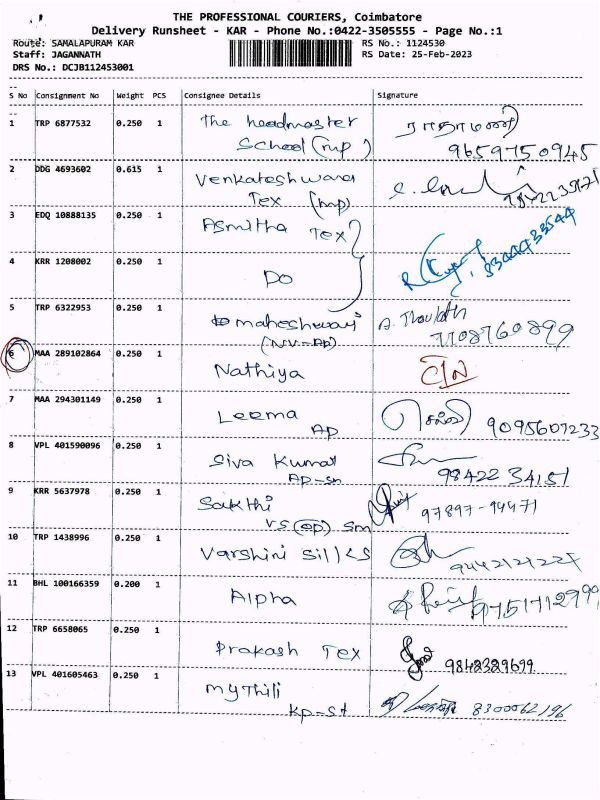 THE PROFESSIONAL COURIERS, Coimbatore
Delivery Runsheet - KAR - Phone No.:0422-3505555 - Page No.:1
Route: SAMALAPURAM KAR
RS No.: 1124530
Staff: JAGANNATH
RS Date: 25-Feb-2023
DRS No.: DCJB112453001
S No Consignment No Weight PCS Consignee Details Signature
1 TRP 6877532 0.250 1 The headmaster ராதாமணி
School (mp) 9659750945
2 DDG 4693602 0.615 1 Venkateshwara
Tex (mp)
3 EDQ 10888135 0.250 1 Asmitha Tex
8344433544
4 KRR 1208002 0.250 1 Do
5 TRP 6322953 0.250 1 maheshwari
(NV-AP) 7708760899
6 MAA 289102864 0.250 1 Nathiya
7 MAA 294301149 0.250 1 Leema செல்வி 9095607233
AP
8 VPL 401590096 0.250 1 Siva Kumar
AP-sn 98422 34151
9 KRR 5637978 0.250 1 Sakthi 97897-94471
VS (ap) sm
10 TRP 1438996 0.250 1 Varshini Sillks
11 BHL 100166359 0.200 1 Alpha 9751712999
12 TRP 6658065 0.250 1 Prakash Tex 9842329699
13 VPL 401605463 0.250 1 Mythili 8300062196
KP-St